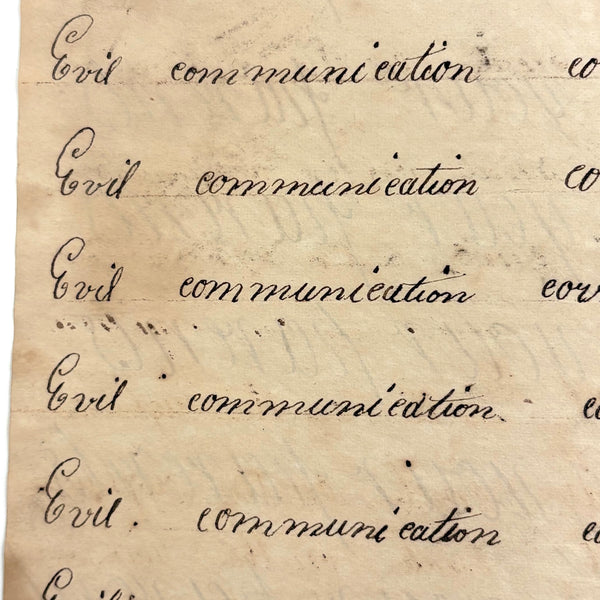 Evil communication co
Evil communication co
Evil communication cor
Evil communication. co
Evil. communication co
Evil